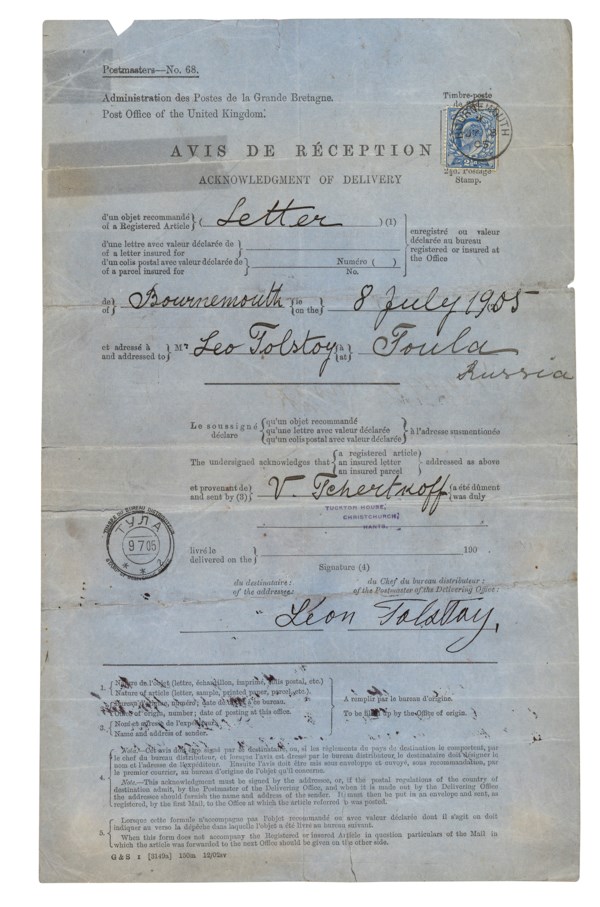 Postmasters—No. 68.
Administration des Postes de la Grande Bretagne.
Post Office of the United Kingdom.
Timbre-poste
BOURNEMOUTH
2½d. Postage
Stamp.
AVIS DE RÉCEPTION
ACKNOWLEDGMENT OF DELIVERY
d'un objet recommandé
of a Registered Article
( Letter ) (1)
d'une lettre avec valeur déclarée de
of a letter insured for
d'un colis postal avec valeur déclarée de
of a parcel insured for
Numéro ( )
No.
enregistré ou valeur
déclarée au bureau
registered or insured at
the Office
de
of
Bournemouth
le
on the
8 July 1905
et adressé à
and addressed to
Mr Leo Tolstoy
à
at
Toula
Russia
Le soussigné
déclare
qu'un objet recommandé
qu'une lettre avec valeur déclarée
qu'un colis postal avec valeur déclarée
à l'adresse susmentionée
The undersigned acknowledges that
a registered article
an insured letter
an insured parcel
addressed as above
et provenant de
and sent by (3)
V. Tchertkoff
a été dûment
was duly
TUCKTON HOUSE,
CHRISTCHURCH,
HANTS.
ТУЛА
9 7 05
2
livré le
delivered on the
190
Signature (4)
du destinataire:
of the addressee:
du Chef du bureau distributeur:
of the Postmaster of the Delivering Office:
Léon Tolstoy,
1.
Nature de l'objet (lettre, échantillon, imprimé, colis postal, etc.)
Nature of article (letter, sample, printed paper, parcel, etc.).
2.
date de
ce bureau.
Office of origin, number; date of posting at this office.
3.
Nom et adresse de l'expéditeur.
Name and address of sender.
A remplir par le bureau d'origine.
To be filled up by the Office of origin.
4.
Nota.—Cet avis doit être signé par le destinataire, ou, si les règlements du pays de destination le comportent, par
le chef du bureau distributeur, et lorsque l'avis est dressé par le bureau distributeur, le destinataire doit désigner le
nom et l'adresse de l'expéditeur. Ensuite l'avis doit être mis sous enveloppe et envoyé, sous recommandation, par
le premier courrier, au bureau d'origine de l'objet qu'il concerne.
Note.—This acknowledgment must be signed by the addressee, or, if the postal regulations of the country of
destination admit, by the Postmaster of the Delivering Office, and when it is made out by the Delivering Office
the addressee should furnish the name and address of the sender. It must then be put in an envelope and sent, as
registered, by the first Mail, to the Office at which the article referred to was posted.
5.
Lorsque cette formule n'accompagne pas l'objet recommandé ou avec valeur déclarée dont il s'agit on doit
indiquer au verso la dépêche dans laquelle l'objet a été livré au bureau suivant.
When this form does not accompany the Registered or insured Article in question particulars of the Mail in
which the article was forwarded to the next Office should be given on the other side.
G & S I [3149a] 150m 12/02w